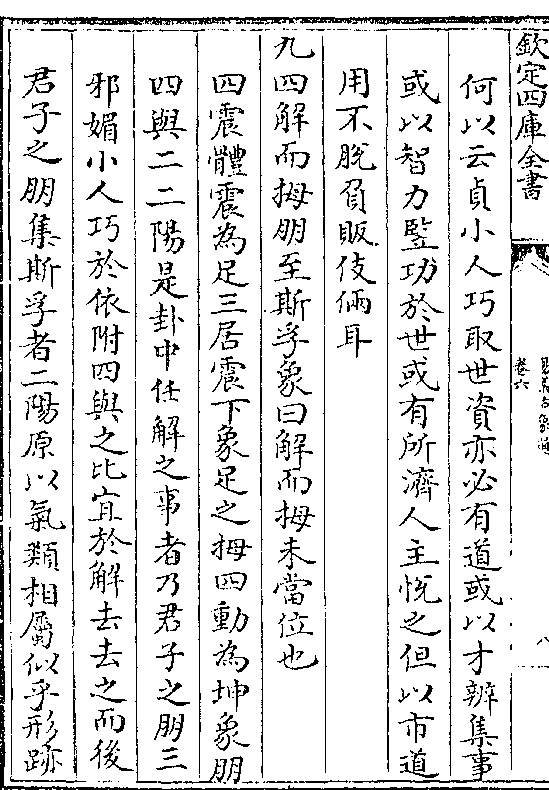 欽定四庫全書
卷六
八
何以云貞小人巧取世資亦必有道或以才辨集事
或以智力豎功於世或有所濟人主悅之但以市道
用不脫負販伎倆耳
九四解而拇朋至斯孚象曰解而拇未當位也
四震體震為足三居震下象足之拇四動為坤象朋
四與二二陽是卦中任解之事者乃君子之朋三
邪媚小人巧於依附四與之比宜於解去去之而後
君子之朋集斯孚者二陽原以氣類相屬似乎形跡